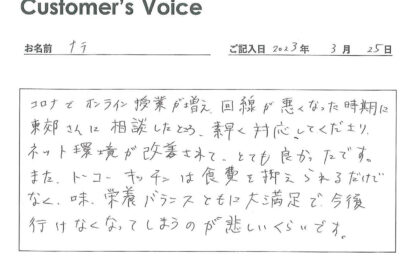 Customer's Voice
お名前 ナラ ご記入日 2023年 3月 25日
コロナでオンライン授業が増え、回線が悪くなった時期に
東郊さんに相談したところ、素早く対応してくださり、
ネット環境が改善されて、とても良かったです。
また、トーコーキッチンは食費を抑えられるだけで
なく、味、栄養バランスともに大満足で、今後
行けなくなってしまうのが悲しいくらいです。